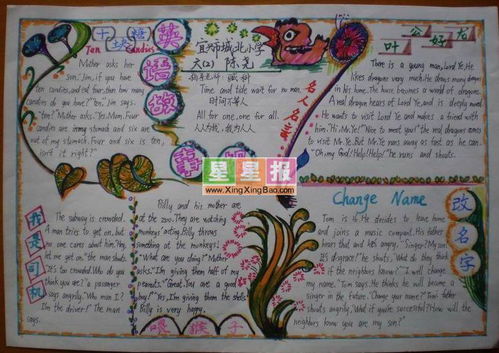 十块糖
Ten Candies
Mother asks her
son: "Jim, if you have
ten candies, and eat four, then how many
candies do you have?" "Ten," Jim says.
"Ten?" Mother asks. "Yes, Mum. Four
candies are in my stomach and six are
out of my stomach. Four and six is ten,
isn't it right?"
英语
宜兴市城北小学
六(2) 陈尧
Time and tide wait for no man.
时间不等人
All for one, one for all.
人人为我,我为人人
名人名言
叶公好龙
There is a young man, Lord Ye. He
likes dragons very much. He draws many dragons
in his home. The house becomes a world of dragons.
A real dragon hears of Lord Ye, and is deeply moved.
He wants to visit Lord Ye and makes a friend with
him. "Hi, Mr. Ye! Nice to meet you!" the real dragon comes
to visit Mr. Ye. But Mr. Ye runs away as fast as he can.
"Oh, my God! Help! Help!" He runs and shouts.
星星报
www.XingXingBao.com
我是司机
The subway is crowded.
A man tries to get on, but
no one cares about him. "Hey,
let me get on." the man shouts.
"It's too crowded. Who do you
think you are?" a passenger
says angrily. "Who am I?
I'm the driver!" The man
says.
Billy and his mother are
at the zoo. They are watching
monkeys acting. Billy throws
something at the monkeys.
"What are you doing?" Mother
asks. "I'm giving them half of my
peanuts." "Great. You are a good
boy!" "Yes, I'm giving them the shells."
Billy is very happy.
喂猴子
Change Name
改名字
Tom is 14. He decides to leave home
and joins a music company. His father
hears that and gets angry. "Singer? My son
is a singer?" he shouts. "What do they think
if the neighbors know?" "I will change
my name." Tom says. He thinks he will become a
singer in the future. "Change your name?" Tom's father
shouts angrily. "What if you're successful? How will the
neighbors know you are my son?"